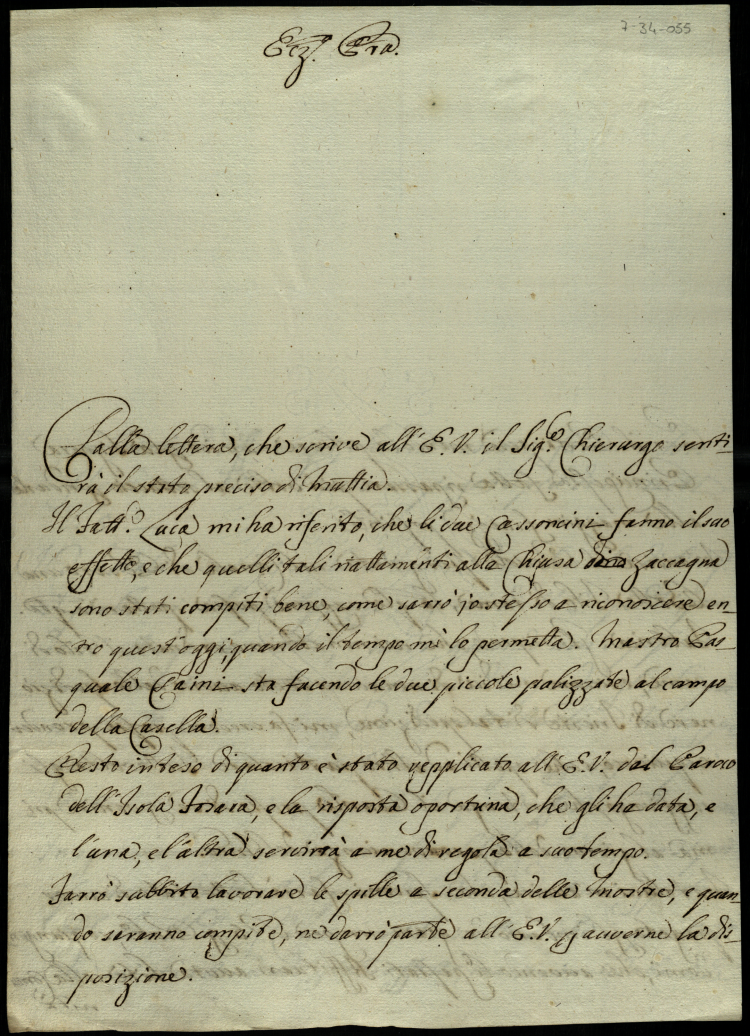 7-34-055
Ecz.ᵃ Pra.
Dalla lettera, che scrive all'E.V. il Sig.ᵉ Chierurgo senti-
rà il stato preciso di Mattia.
Il Fatt.ᵉ Luca mi ha riferito, che li due Cassoncini fanno il suo
effetto, e che quelli tali riattamenti alla Chiusa Zaccagna
sono stati compiti bene, come sarrò jo stesso a riconoscere en-
tro quest'oggi, quando il tempo mi lo permetta. Mastro Pas-
quale Caini sta facendo le due piccole palizzate al campo
della Casella.
Resto inteso di quanto è stato repplicato all'E.V. dal Paroco
dell'Isola Fosara, e la risposta oportuna, che gli ha data, e
l'una, e l'altra servirrà a me di regola a suo tempo.
Farrò subbito lavorare le spille a seconda delle mostre, e quan-
do saranno compite, ne darrò parte all'E.V. p auverne la dis-
posizione.